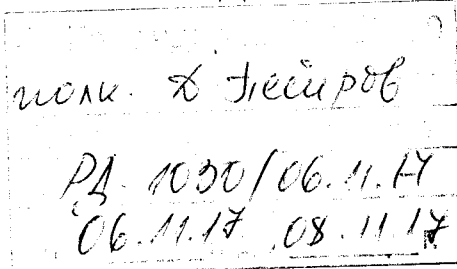 полк. Д
РД 1030/06.11.17
06.11.17 08.11.17